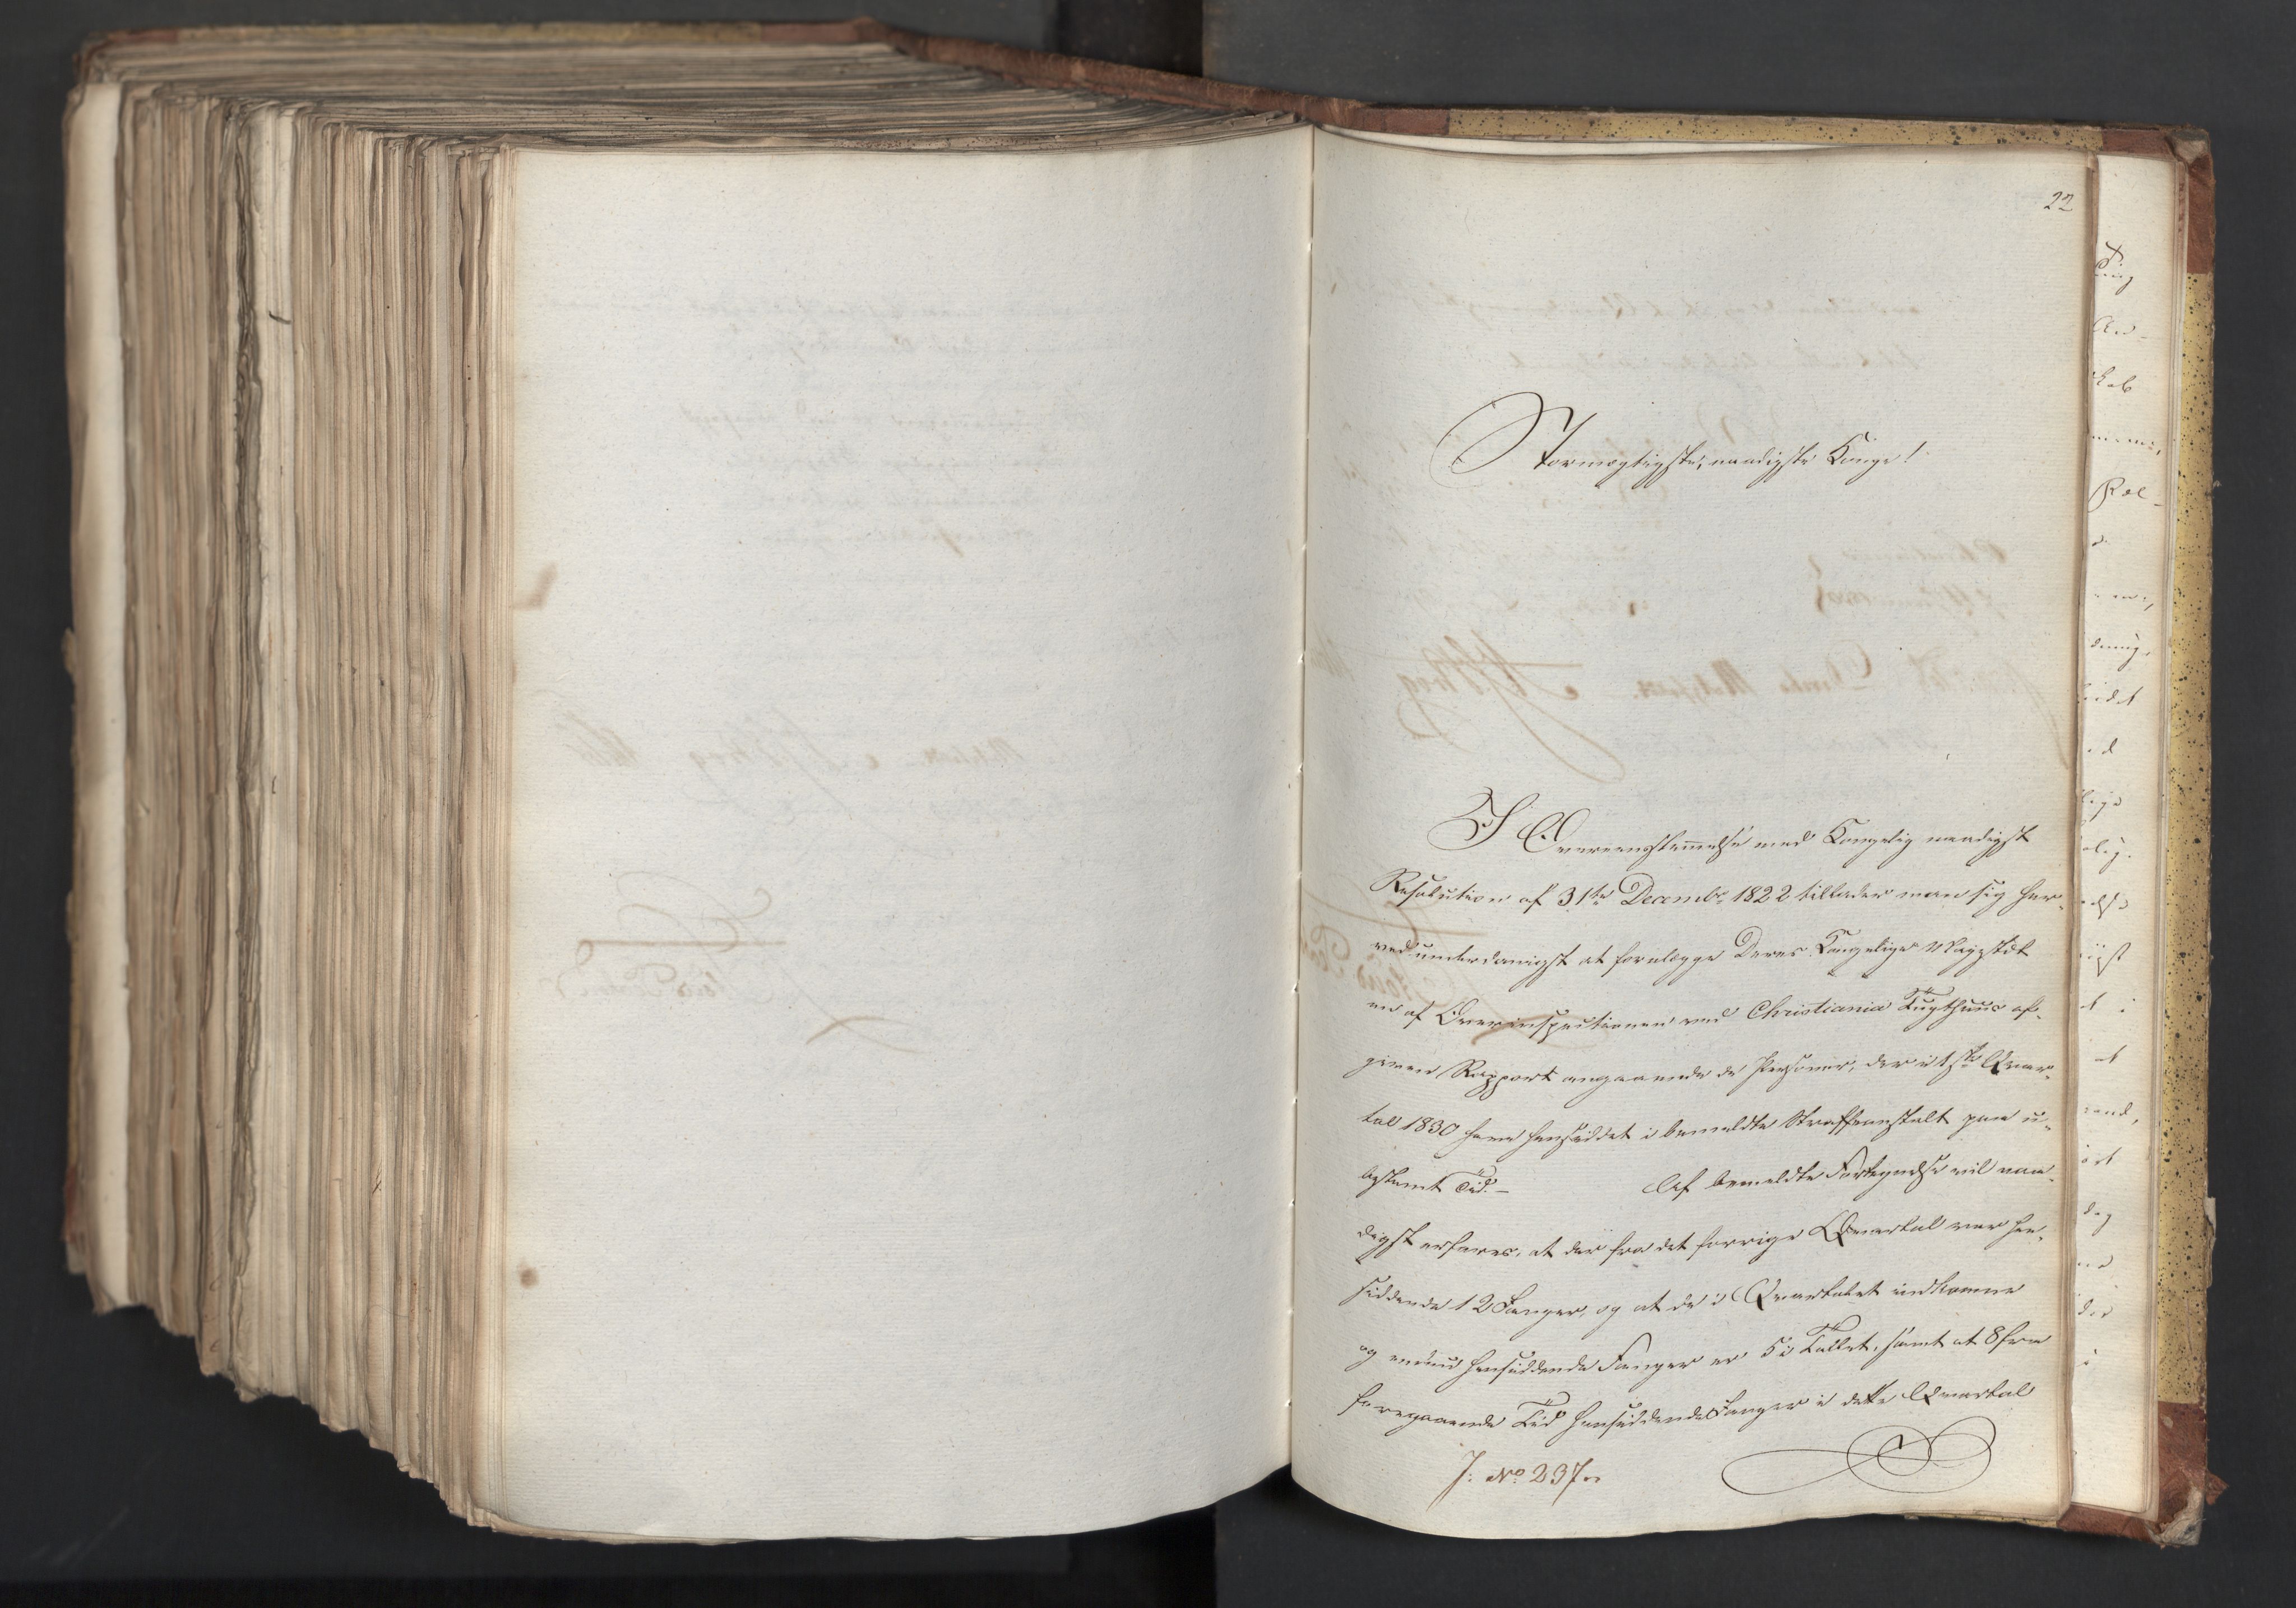 22
Stormægtigste, naadigste Konge!
I Overeensstemmelse med Kongelig naadigst
Resolution af 31te Decembr 1822 tillader man sig her-
ved underdanigst at forelægge Deres Kongelige Majestæt
en af Overinspectionen ved Christiania Tugthuus af-
given Rapport angaaende de Personer, der i 1ste Qvar-
tal 1830 have hensiddet i bemeldte Straffeanstalt paa u-
bestemt Tid. — Af bemeldte Fortegnelse vil naa-
digst erfares, at der fra det forrige Qvartal var hen-
siddende 12 Fanger, og at de i Qvartalet indkomne
og endnu hensiddende Fanger er 5 i Tallet, samt at 8 fra
foregaaende Tid hensiddende Fanger i dette Qvartal
J: No 237